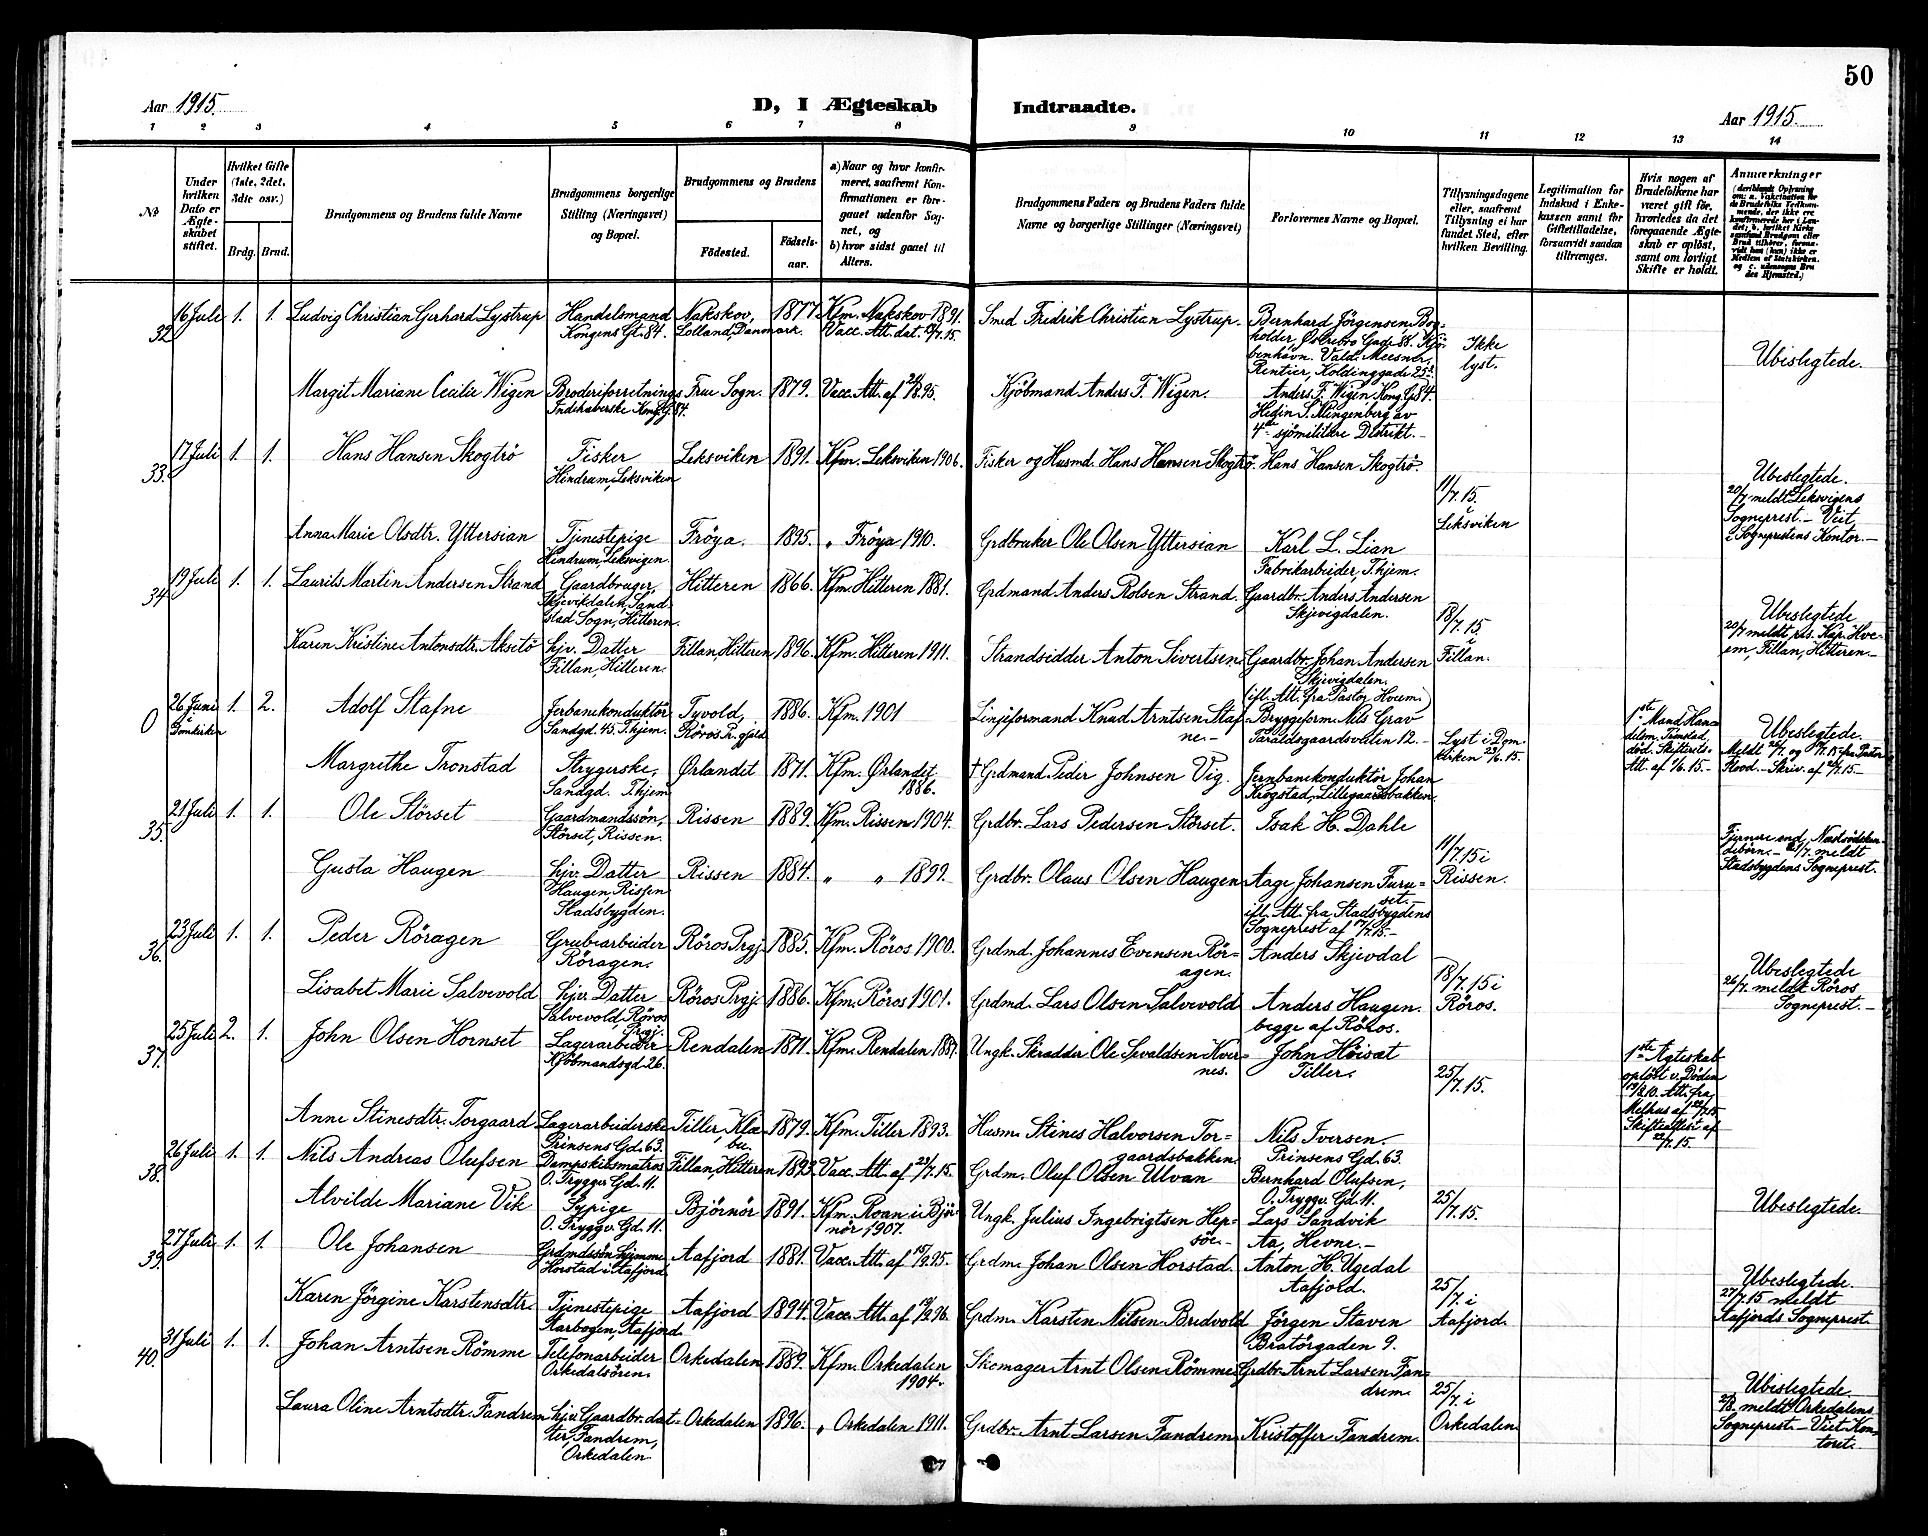 50
Aar 1915.
D, I Ægteskab
Indtraadte.
Aar 1915.
1 2 3 4 5 6 7 8 9 10 11 12 13 14
No
Under hvilken Dato er Ægteskabet stiftet.
Hvilket Gifte (1ste, 2det, 3die osv.)
Brdg. Brud.
Brudgommens og Brudens fulde Navne
Brudgommens borgerlige Stilling (Næringsvei) og Bopæl.
Brudgommens og Brudens
Fødested.
Fødselsaar.
a) Naar og hvor konfirmeret, saafremt Konfirmationen er foregaaet udenfor Sognet, og
b) hvor sidst gaaet til Alters.
Brudgommens Faders og Brudens Faders fulde Navne og borgerlige Stillinger (Næringsvei)
Forlovernes Navne og Bopæl.
Tillysningsdagene eller, saafremt Tillysning ei har fundet Sted, efter hvilken Bevilling.
Legitimation for Indskud i Enkekassen samt for Giftetilladelse, forsaavidt saadan tiltrænges.
Hvis nogen af Brudefolkene har været gift før, hvorledes da det foregaaende Ægteskab er opløst, samt om lovligt Skifte er holdt.
Anmærkninger
32 16 Juli 1. 1. Ludvig Christian Gerhard Lystrup Handelsmand Kongens Gt. 84. Nakskov, Lolland, Danmark. 1877 Kfm. Nakskov 1891. Vacc. Att. dat. 13/7. 15. Smed Fridrik Christian Lystrup. Bernhard Jörgensen, Bogholder, Østrebro Gade 88. Kjöbenhavn. Vald. Meesner, Rentier, Koldinggade 25². Ikke lyst. Ubeslegtede.
Margit Mariane Cecilie Wigen Broderiforretnings Indehaverske Kong. G. 84. Frue Sogn. 1879. Vacc. Att. af Kjöbmand Anders F. Wigen. Anders F. Wigen, Kong. G. 84. Hedin S. Klingenberg av 4de sjömilitære Distrikt.
33. 17 Juli 1. 1. Hans Hansen Skogtrö Fisker Hindrum, Leksviken Leksviken 1891. Kfm. Leksviken 1906. Fisker og Husmd. Hans Hansen Skogtrö. Hans Hansen Skogtrö. 11/7. 15. i Leksviken Ubeslegtede. 20/7 meldt Leksvigens Sogneprest. — Viet i Sogneprestens Kontor. —
Anna Marie Olsdtr. Yttersian Tjenestepige Hindrum, Leksvigen. Fröya. 1895. " Fröya 1910. Grdbruker Ole Olsen Yttersian Karl L. Lian Fabrikarbeider, T.hjem.
34. 19 Juli 1. 1. Laurits Martin Andersen Strand Gaardbruger, Skjevikdalen, Sandstad Sogn, Hitteren. Hitteren 1866. Kfm. Hitteren 1881. Grdmand Anders Rolsen Strand. Gaardbr. Anders Andersen Skjevigdalen. 18/7. 15. i Fillan. Ubeslegtede 20/7 meldt, res. Kap. Hveem, Fillan, Hitteren. —
Karen Kristine Antonsdtr. Aksetö hjv. Datter Fillan, Hitteren. Fillan, Hitteren 1896. Kfm. Hitteren 1911. Strandsidder Anton Sivertsen Gaardbr. Johan Andersen Skjevigdalen. (ifl. Att. fra Pastor Hveem)
0 26 Juni Domkirken 1. 2. Adolf Stafne Jerbanekonduktör Sandgd. 45. T.hjem. Tyvold, Röros 1886. Kfm. 1901 Linjeformand Knud Arntsen Stafne. — Bryggeform. Nils Grav Taraldsgaardsveiten 12. — Lyst i Domkirken 23/6. 15. 1ste Mand Handelsm. Tronstad, död. Skifteretsatt. af 1/6. 15. — Ubeslegtede.
Margrethe Tronstad Strygerske, Sandgd. T.hjem Ørlandet 1871. Kfm. Ørlandet 1886. † Grdmand Peder Johnsen Vig. Jernbanekonduktör Johan Krogstad, Lillegaardsbakken.
35. 21 Juli 1. 1. Ole Störset Gaardmandssön, Störset, Rissen. Rissen 1889. Kfm. Rissen 1904. Grdbr. Lars Pedersen Störset. Isak H. Dahle 11/7. 15 i Rissen. Fjernere end Næstsödskendebörn. — meldt Stadsbygdens Sogneprest.
Gusta Haugen hjv. Datter Haugen, Rissen Stadsbygden. Rissen 1884. " " 1899. Grdbr. Olaus Olsen Haugen Aage Johansen Furuset. — ifl. Att. fra Stadsbygdens Sogneprest af 17/7. 15. —
36. 23 Juli 1. 1. Peder Röragen Grubearbeider Röragen. Röros Prgj. 1885. Kfm. Röros 1900. Grdmd. Johannes Evensen Röragen. Anders Skjevdal 18/7. 15 i Röros. Ubeslegtede 26/7. meldt Röros Sogneprest. —
Lisabet Marie Salvevold hjv. Datter Salvevold, Röros Prgj. Röros Prgj. 1886. Kfm. Röros 1901. Grdmd. Lars Olsen Salvevold Anders Haugen. begge af Röros.
37. 25 Juli 2. 1. John Olsen Hornset Lagerarbeider Kjöbmandsgd. 26. Rendalen 1871. Kfm. Rendalen 1887. Ungk. Skrædder Ole Sevaldsen Kvernes. John Höiset Tiller. 25/7. 15. 1ste Ægteskab oplöst v. Döden Att. fra Melhus af 22/7. 15. Skifteattest af 22/7. 15.
Anne Stinesdtr. Torgaard Lagerarbeiderske Prinsens Gd. 63. Tiller, Klæbu 1879. Kfm. Tiller 1893. Husm. Stines Halvorsen Torgaardsbakken. Nils Iversen. Prinsens Gd. 63.
38. 26 Juli 1. 1. Nils Andreas Olufsen Dampskibsmatros O. Tryggv. Gd. 11. Fillan, Hitteren 1893 Vacc. Att. af 23/7. 15. Grdm. Oluf Olsen Ulvan Bernhard Olufsen, O. Tryggv. Gd. 11. 25/7. 15. Ubeslegtede.
Alvilde Mariane Vik Sypige O. Tryggv. Gd. 11. Björnör 1891. Kfm. Roan i Björnör 1907. Ungk. Julius Ingebrigtsen Hepsöe. — Lars Sandvik Aa, Hevne. —
39. 27 Juli 1. 1. Ole Johansen Grdmdssön hjemme Horstad i Aafjord Aafjord 1881. Vacc. Att. af 15/9. 95. Grdm. Johan Olsen Horstad. Anton H. Ugedal Aafjord. 25/7. i Aafjord. Ubeslegtede. 27/7. 15 meldt Aafjords Sogneprest.
Karen Jörgine Karstensdtr. Tjenestepige Aarbogen, Aafjord. Aafjord 1894. Vacc. Att. af 19/9. 96. Grdm. Karsten Nilsen Bredvold Jörgen Staven Bratörgaden 9.
40. 31 Juli 1. 1. Johan Arntsen Römme Telefonarbeider Orkedalsören. Orkedalen 1889. Kfm. Orkedalen 1904. Skomager Arnt Olsen Römme Grdbr. Arnt Larsen Fandrem. 25/7. i Orkedalen. Ubeslegtede. meldt Orkedalens Sogneprest. — Viet Kontoret.
Laura Oline Arntsdtr. Fandrem hjv. Gaardbr. datter, Fandrem, Orkedalen. Orkedalen 1896. " Orkedalen 1911. Grdbr. Arnt Larsen Fandrem Kristoffer Fandrem.